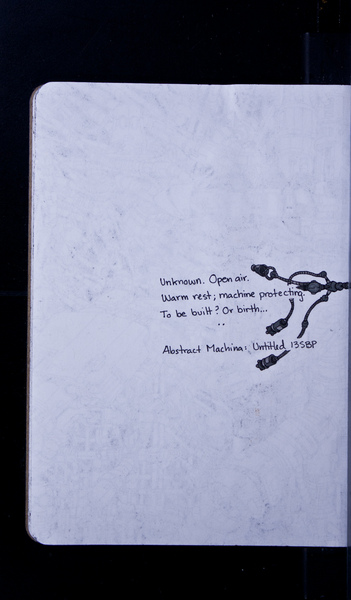 Unknown. Open air.
Warm rest; machine protecting.
To be built? Or birth...
..
Abstract Machina: Untitled 13SBP